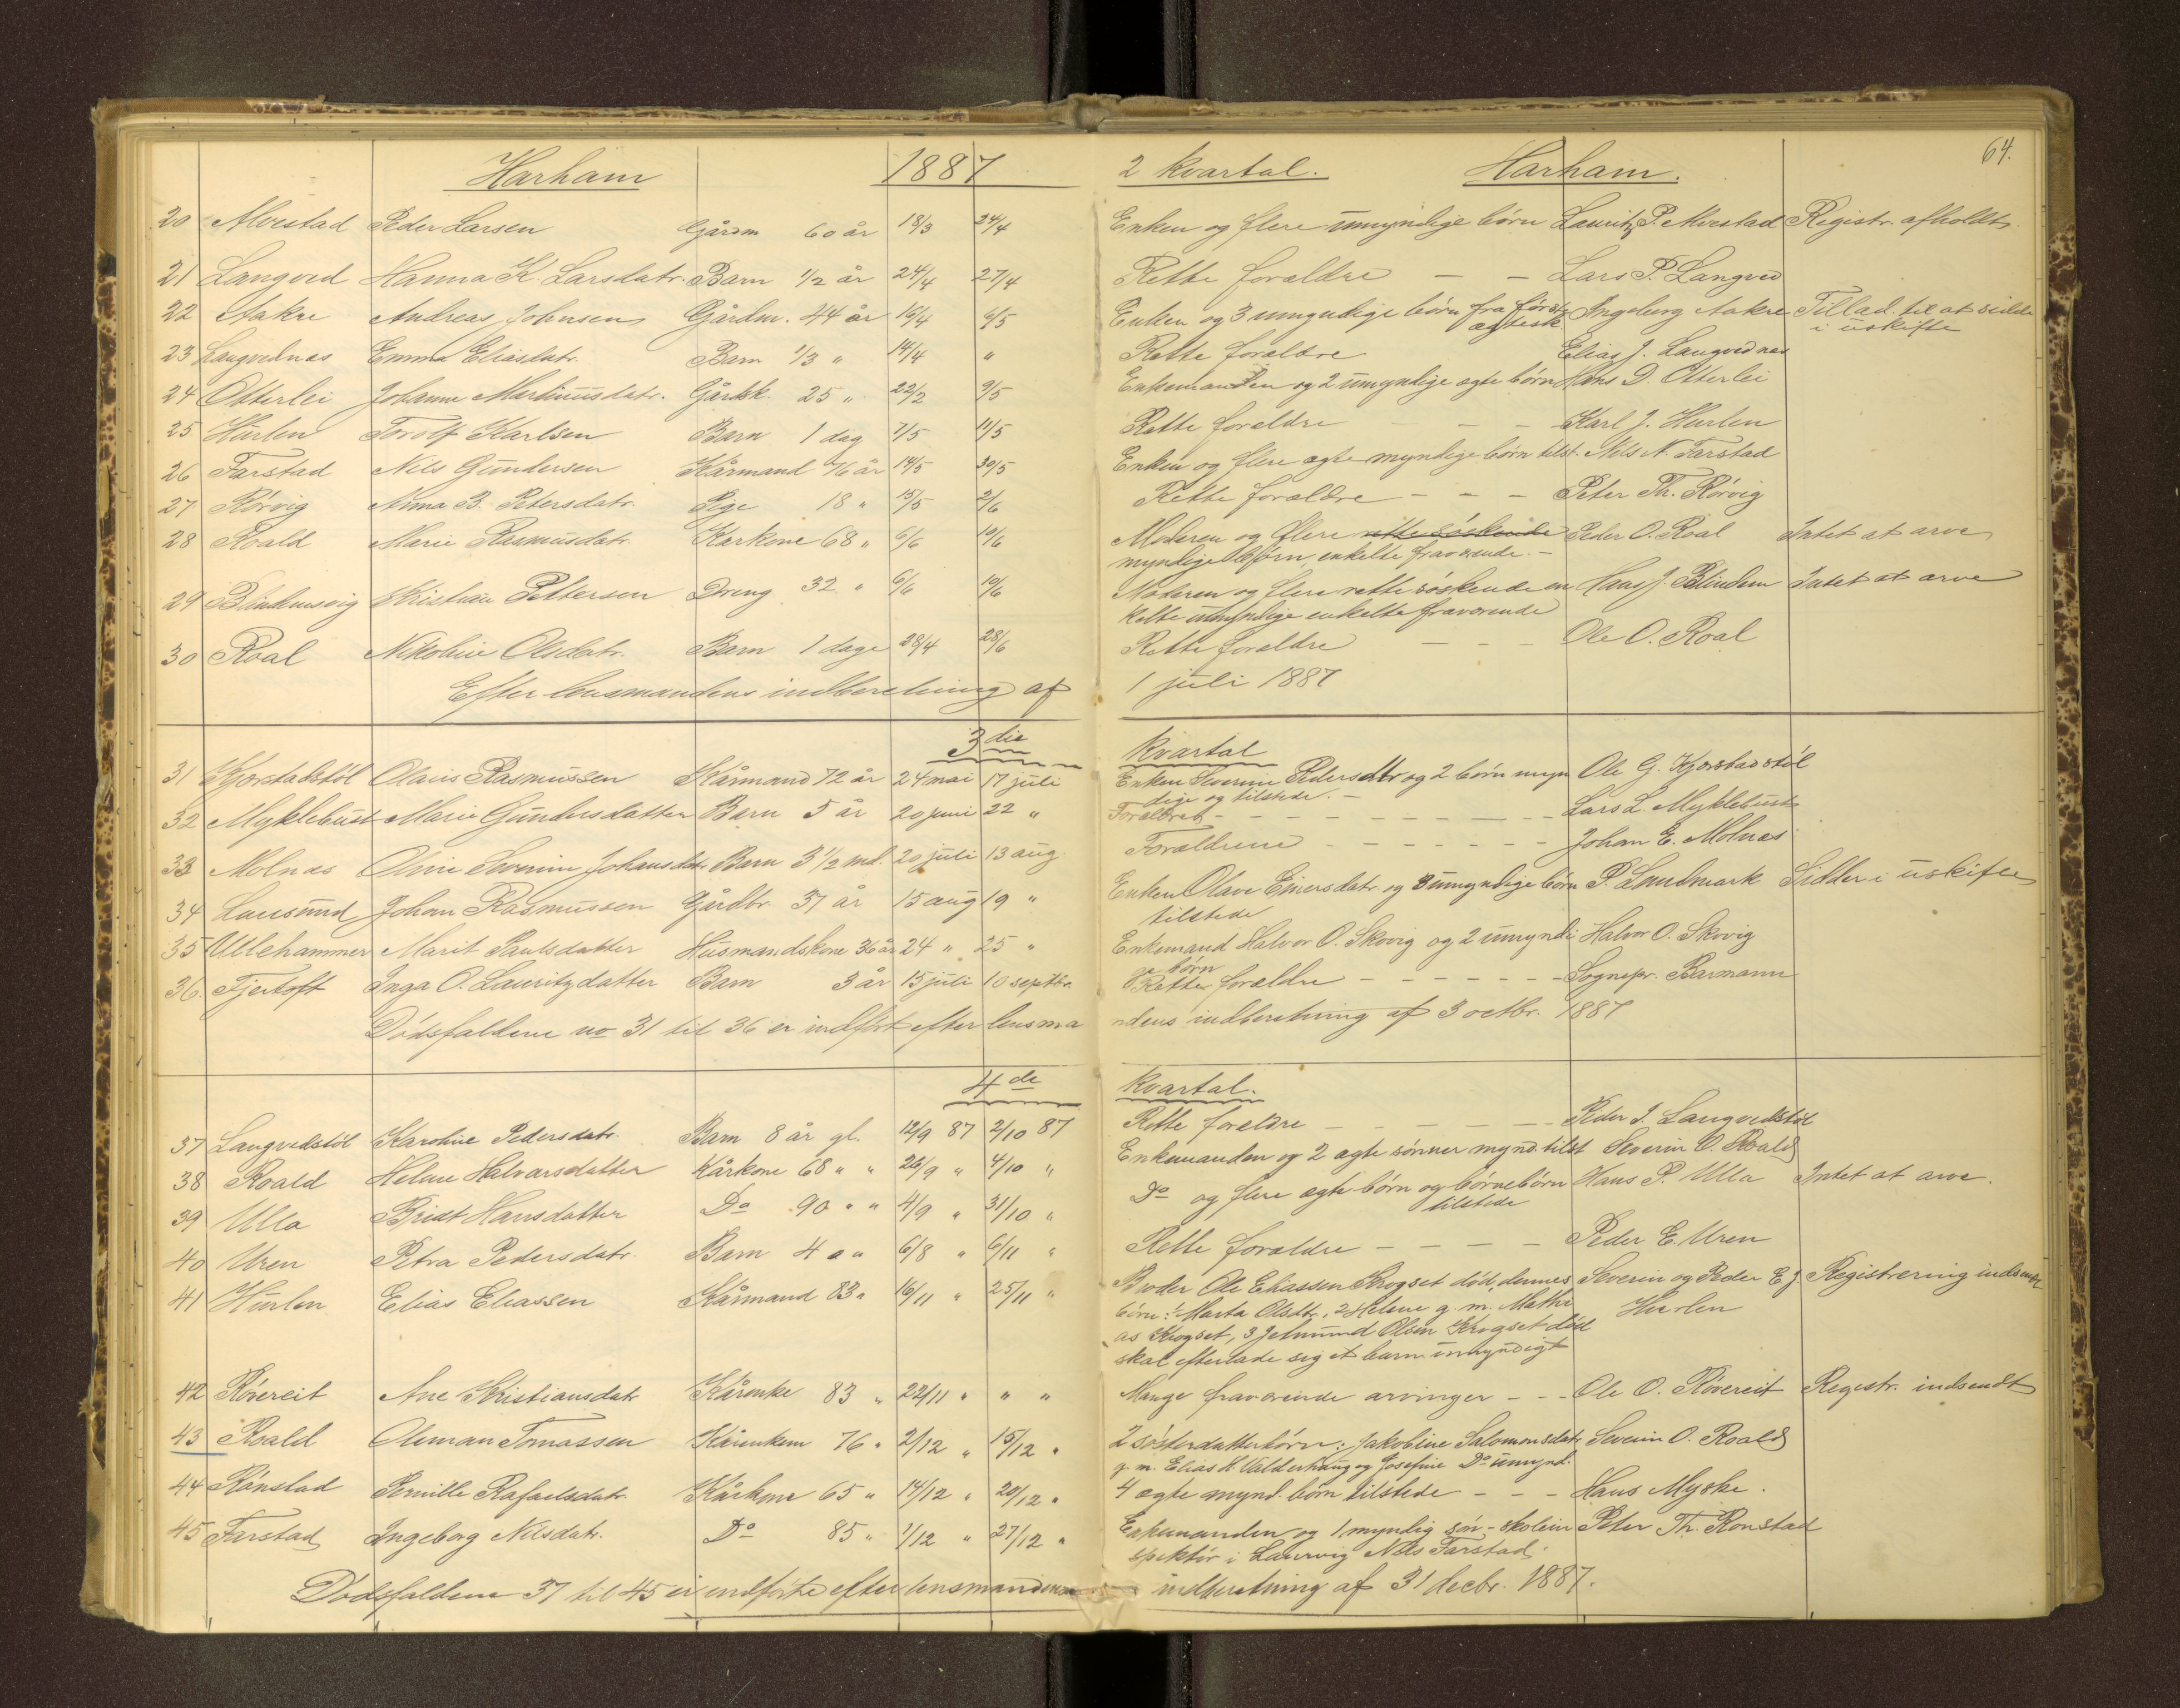 64.
Harham 1887 2 kvartal. Harham.
20 Alvestad Peder Larsen Gårdm 60 år 18/3 24/4 Enken og flere umyndige børn Lauritz P. Alvestad Registr. afholdt.
21 Langved Hanna K. Larsdatr. Barn 1/2 år 24/4 27/4 Rette forældre — — Lars P. Langved
22 Aakre Andreas Johnsen Gårdm. 44 år 16/4 6/5 Enken og 3 umyndige børn fra først Ingeborg Aakre Tillad. til at sidde
ægtesk i uskifte
23 Langvednæs Emma Eliasdatr. Barn 1/3 " 14/4 " Rette forældre Elias J. Langvednæs
24 Otterlei Johanne Martinusdatr. Gårdsk. 25 " 22/2 9/5 Enkemanden og 2 umyndige ægte børn Hans D. Otterlei
25 Hurlen Torolf Karlsen Barn 1 dag 7/5 11/5 Rette foreldre — — — Karl J. Hurlen
26 Farstad Nils Gundersen Kårmand 76 år 14/5 30/5 Enken og flere ægte myndige børn tilst. Nils N. Farstad
27 Rörvig Anna B. Petersdatr. Pige 18 " 15/5 2/6 Rette forældre — — — Peter Th. Rörvig
28 Roald Marie Rasmusdatr. Karkone 68 " 6/6 10/6 Moderen og flere rette söskende Peder O. Roal Intet at arve
myndige börn enkelte fraværende. —
29 Blindemsvig Kristian Pettersen Dreng 32 " 6/6 10/6 Moderen og flere rette söskende en Hans J. Blindem Intet at arve
kelte umyndige enkelte fraværende
30 Roal Nikoline Olsdatr. Barn 1 dage 28/4 28/6 Rette foreldre — — — Ole O. Roal
Efter lensmandens indberetning af 1 juli 1887
3die kvartal
31 Kjærstadstöl Olaus Rasmussen Kårmand 72 år 24 mai 17 juli Enken Severine Pedersdtr og 2 börn myn Ole G. Kjærstadstöl
dige og tilstede. —
32 Myklebust Marie Gundersdatter Barn 5 år 20 juni 22 " Forældret — — — Lars L. Myklebust
33 Molnæs Oline Severine Johansdatr Barn 3 1/2 md. 20 juli 13 aug. Forældrene — — — Johan E. Molnæs
34 Lausund Johan Rasmussen Gårdbr. 37 år 15 aug 19 " Enken Olave Einersdatr. og 3 umyndige börn P. Landmark Sidder i uskifte
tilstede
35 Ullehammer Marit Paulsdatter Husmandskone 36 år 24 " 25 " Enkemand Halvor O. Skovig og 2 umyndi Halvor O. Skovig
ge børn
36. Fjertoft Inga O. Lauritzdatter Barn 3 år 15 juli 10 septbr. Rette forældre — — — Sognepr. Barmann
Dödsfaldene no 31 til 36 er indfört efter lensma ndens indberetning af 3 octbr. 1887
4de kvartal.
37 Langvedstöl Karoline Pedersdatr. Barn 8 år gl. 12/9 87 2/10 87 Rette foreldre — — — Peder J. Langvedstöl
38 Roald Helene Halvarsdatter Kårkone 68 " " 26/9 " 4/10 " Enkemanden og 2 ægte sönner mynd. tilst Severin O. Roald
39 Ulla Bridt Hansdatter Do 90 " " 4/9 " 31/10 " Do og flere ægte börn og börnebörn Hans P. Ulla Intet at arve.
tilstede
40 Uren Petra Pedersdatr. Barn 4 " " 6/8 " 6/11 " Rette forældre — — — Peder E. Uren
41 Hurlen Elias Eliassen Kårmand 83 " 16/11 " 25/11 " Broder Ole Eliassen Krogset död, dennes Severin og Peder E. Registrering indsendt
börn: 1 Marta Olsdtr, 2 Helene g. m. Mathi Hurlen
as Krogset, 3 Jetmund Olsen Krogset död
skal efterlade sig et barn umyndigt
42 Rövereit Ane Kristiansdatr Kårenke 83 " 22/11 " " " Mange fraværende arvinger — — Ole O. Rövereit Registr. indsendt
43 Roald Oleman Tomassen Kårenkem 76 " 2/12 " 15/12 " 2 søsterdatterbörn: Jakobine Salomonsdatr Severin O. Roald
g. m. Elias K. Valderhaug og Josefine Do umynd.
44 Rönstad Pernille Rafaelsdatr. Kårkone 65 " 14/12 " 20/12 " 4 ægte mynd. börn tilstede — — — Hans Myske.
45 Farstad Ingeborg Nilsdatr. Do 85 " 1/12 " 27/12 " Enkemanden og 1 myndig sön - skolein Peter Th. Ronstad
spektör i Laurvig Nils Farstad.
Dödsfaldene 37 til 45 er indförte efter lensmandens indberetning af 31 decbr. 1887.